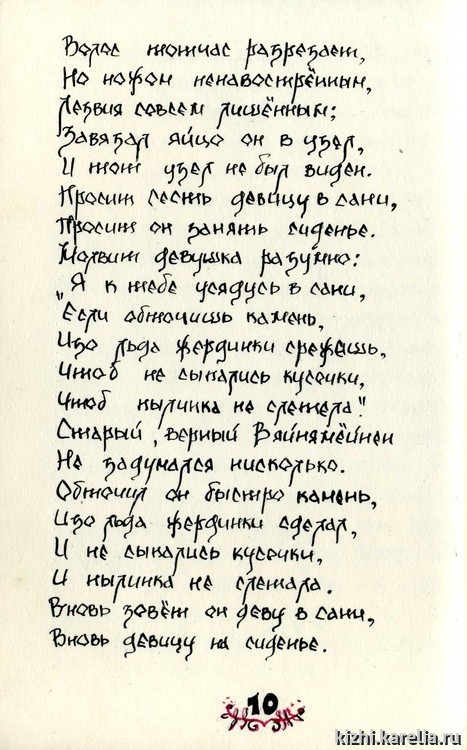 Волос тотчас разрезает,
Но ножом ненавострённым,
Лезвия совсем лишённым;
Завязал яйцо он в узел,
И тот узел не был виден.
Просит сесть девицу в сани,
Просит он занять сиденье.
Молвит девушка разумно:
"Я к тебе усядусь в сани,
Если обточишь камень,
Изо льда жердинки срежешь,
Чтоб не сыпались кусочки,
Чтоб пылинка не слетела!"
Старый, верный Вяйнямёйнен
Не задумался нисколько.
Обточил он быстро камень,
Изо льда жердинки сделал,
И не сыпались кусочки,
И пылинка не слетала.
Вновь зовёт он деву в сани,
Вновь девицу на сиденье.
10
kizhi.karelia.ru